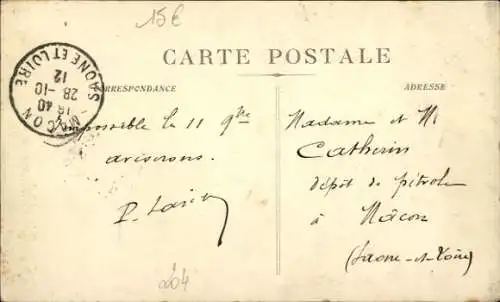 15€
CARTE POSTALE
CORRESPONDANCE
ADRESSE
MACON
18 40
28-10
12
SAONE ET LOIRE
Impossible le 11
aviserons.
Madame et M
Catherin
dépôt de pétrole
à Mâcon
(Saone-et-Loire)
204